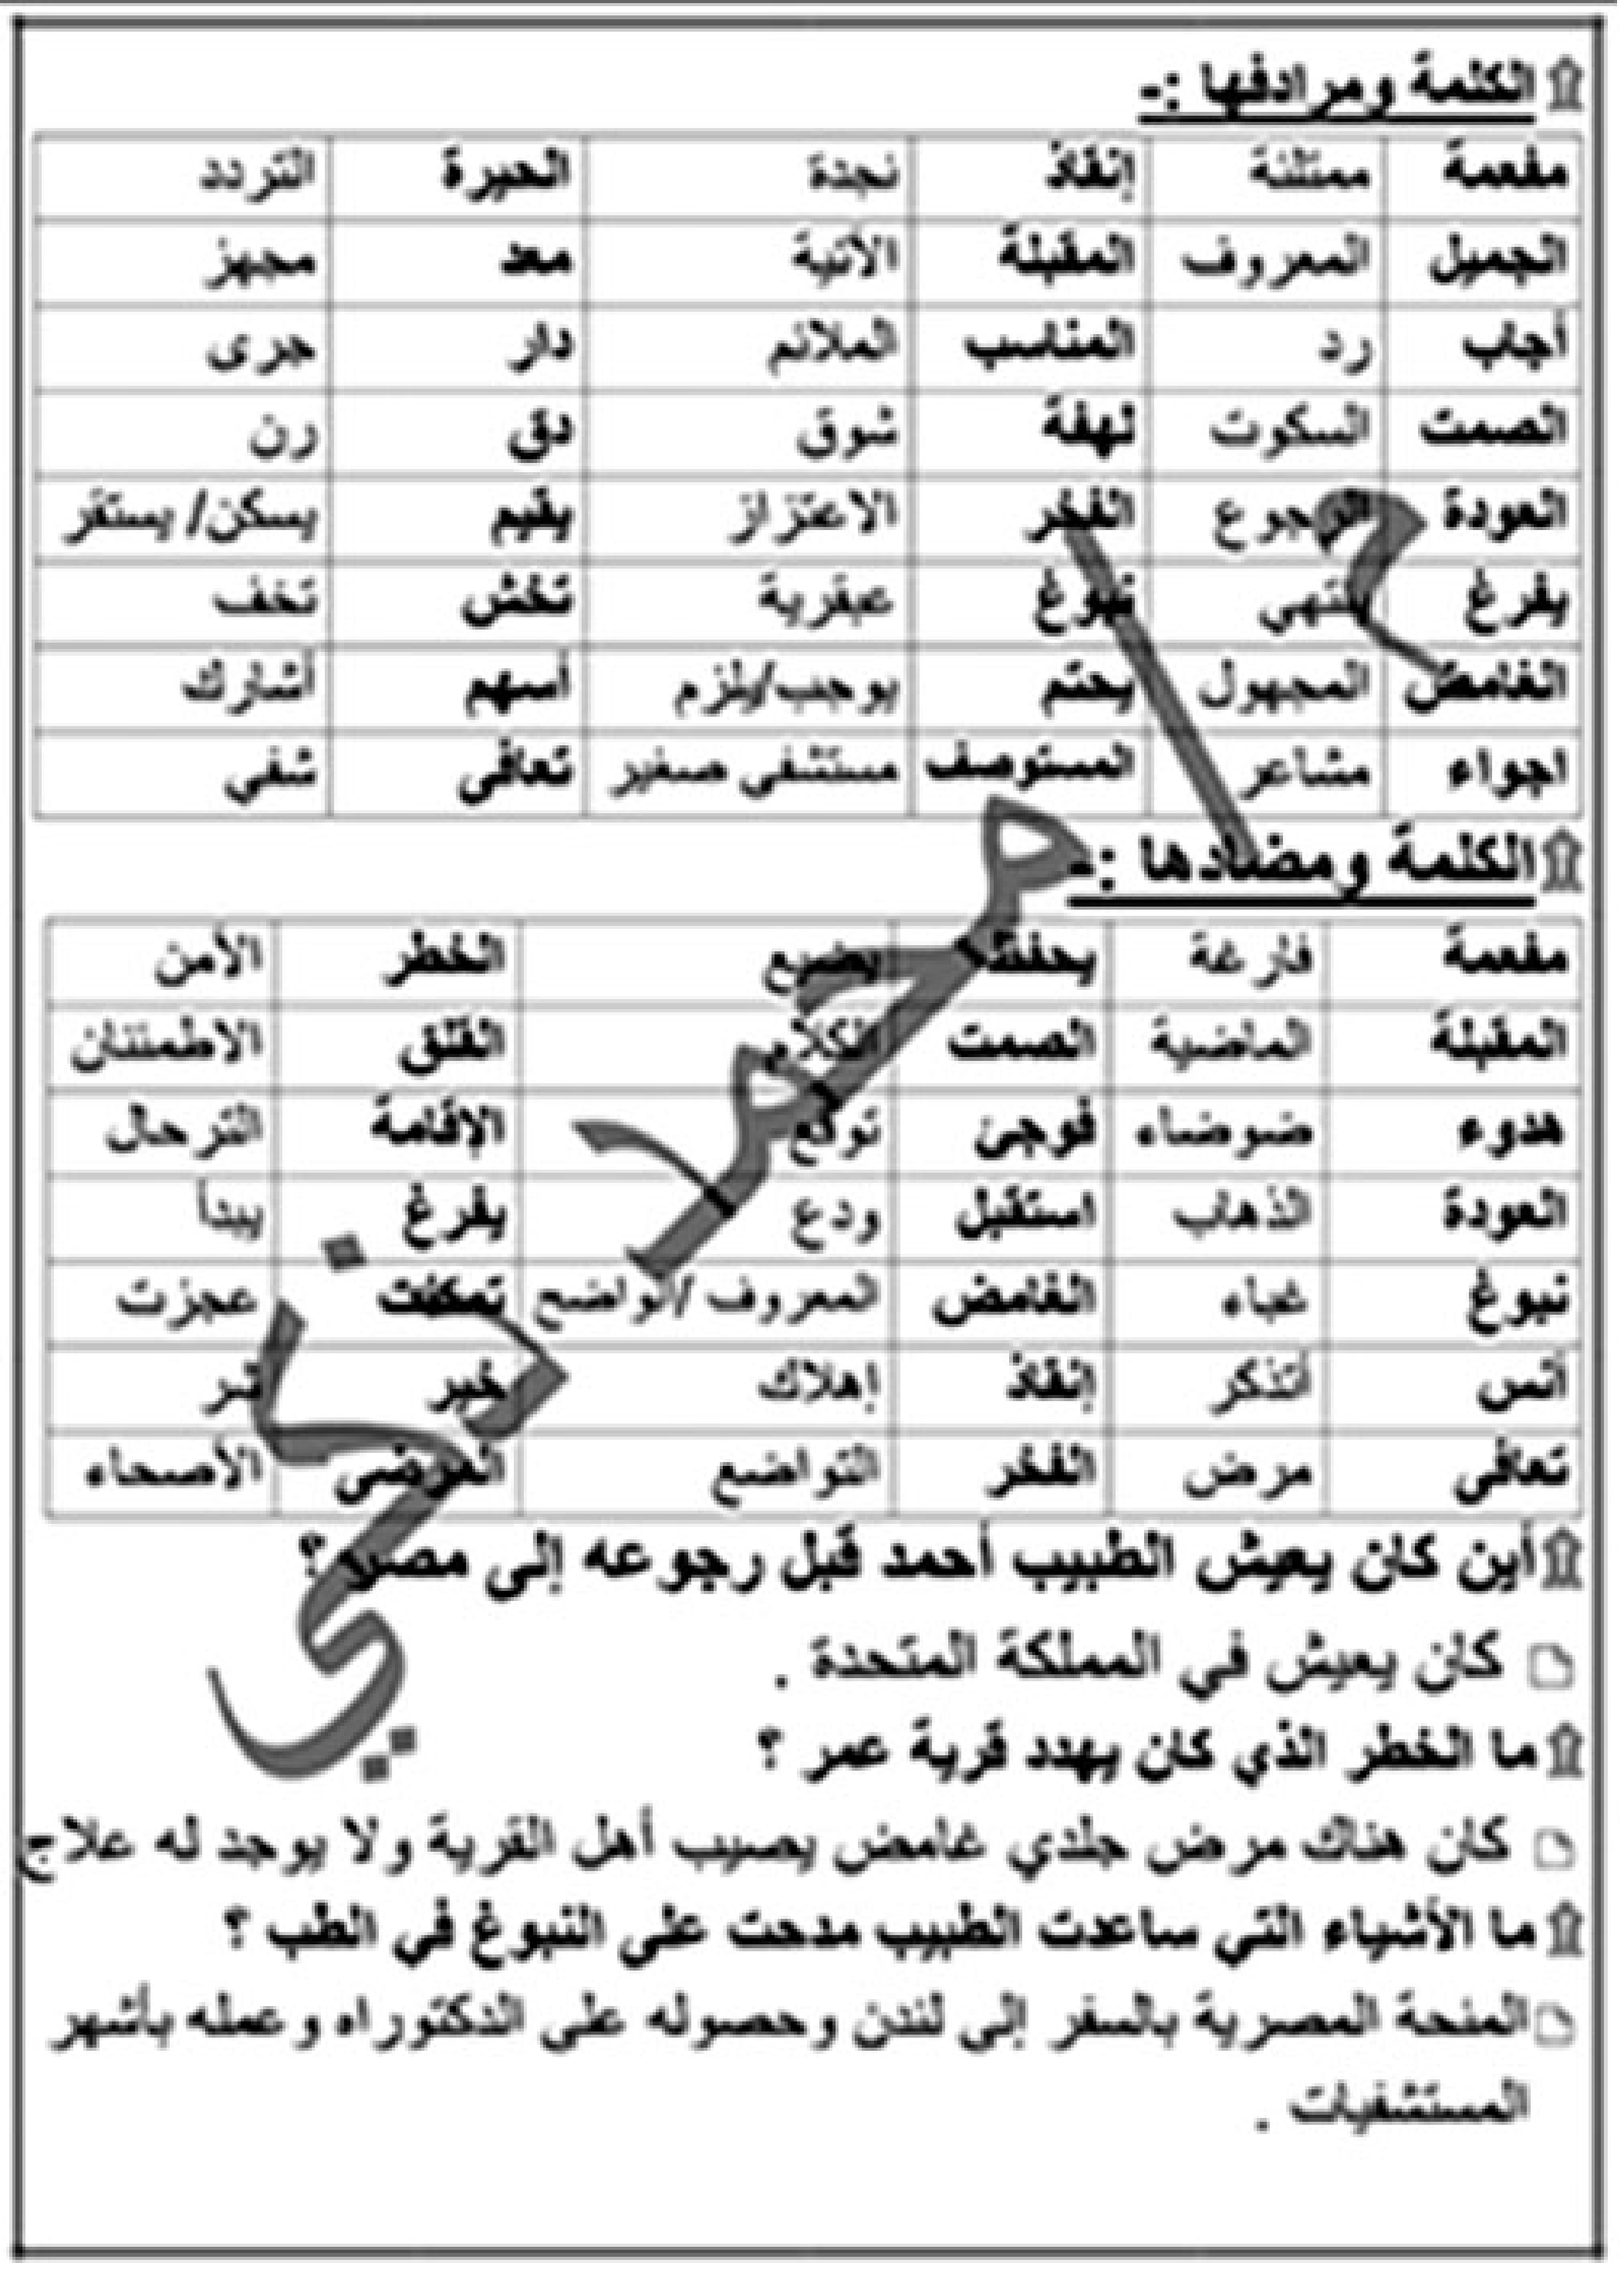 الكلمة ومرادفها :-
مفعمة ممتلئة إنقاذ نجدة الحيرة التردد
الجميل المعروف المقبلة الآتية معد مجهز
أجاب رد المناسب الملائم دار جرى
الصمت السكوت لهفة شوق دق رن
العودة الرجوع الفخر الاعتزاز يقيم يسكن/ يستقر
يفرغ ينتهي نبوغ عبقرية تخش تخف
الغامض المجهول يحتم يوجب/يلزم أسهم أشارك
اجواء مشاعر المستوصف مستشفى صغير تعافى شفي
الكلمة ومضادها :-
مفعمة فارغة يحفظ يضيع الخطر الأمن
المقبلة الماضية الصمت الكلام القلق الاطمئنان
هدوء ضوضاء فوجئ توقع الإقامة الترحال
العودة الذهاب استقبل ودع يفرغ يبدأ
نبوغ غباء الغامض المعروف /الواضح تمكنت عجزت
أنس أتذكر إنقاذ إهلاك خير شر
تعافى مرض الفخر التواضع المرضى الأصحاء
أين كان يعيش الطبيب أحمد قبل رجوعه إلى مصر ؟
كان يعيش في المملكة المتحدة .
ما الخطر الذي كان يهدد قرية عمر ؟
كان هناك مرض جلدي غامض يصيب أهل القرية ولا يوجد له علاج
ما الأشياء التي ساعدت الطبيب مدحت على النبوغ في الطب ؟
المنحة المصرية بالسفر إلى لندن وحصوله على الدكتوراه وعمله بأشهر
المستشفيات .